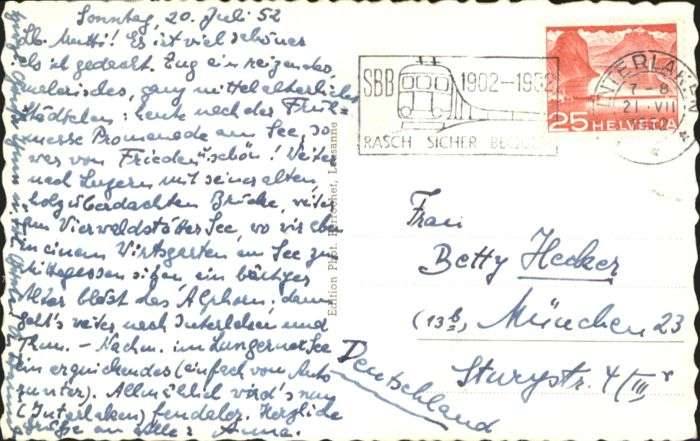 Sonntag, 20. Juli 52
Lb. Mutti! Es ist viel schöner
als ich gedacht. Zug ein reizendes,
malerisches, ganz mittelalterliches
Städtchen; heute nach der Früh-
messe Promenade am See, so
was von Frieden u. schön! Weiter
nach Luzern mit seiner alten,
holzüberdachten Brücke, weiter
am Vierwaldstätter See, wo wir eben
in einem Wirtsgarten am See zu
Mittagessen sitzen, ein bärtiger
Alter bläst das Alphorn; dann
geht's weiter nach Interlaken und
Thun. – Nachm. im Lungerner See
ein erquickendes (einfach vom Auto
runter). Allmählich wird's nun
(Interlaken) feudaler. Herzliche
Grüße an alle: Anna.
Edition Phot. Lausanne
SBB 1902–1952
RASCH SICHER
INTERLAKEN
7–8
21. VII
25 HELVETIA
Frau
Betty Hecker
(13b) München 23
Sturystr. 4/III r
Deutschland